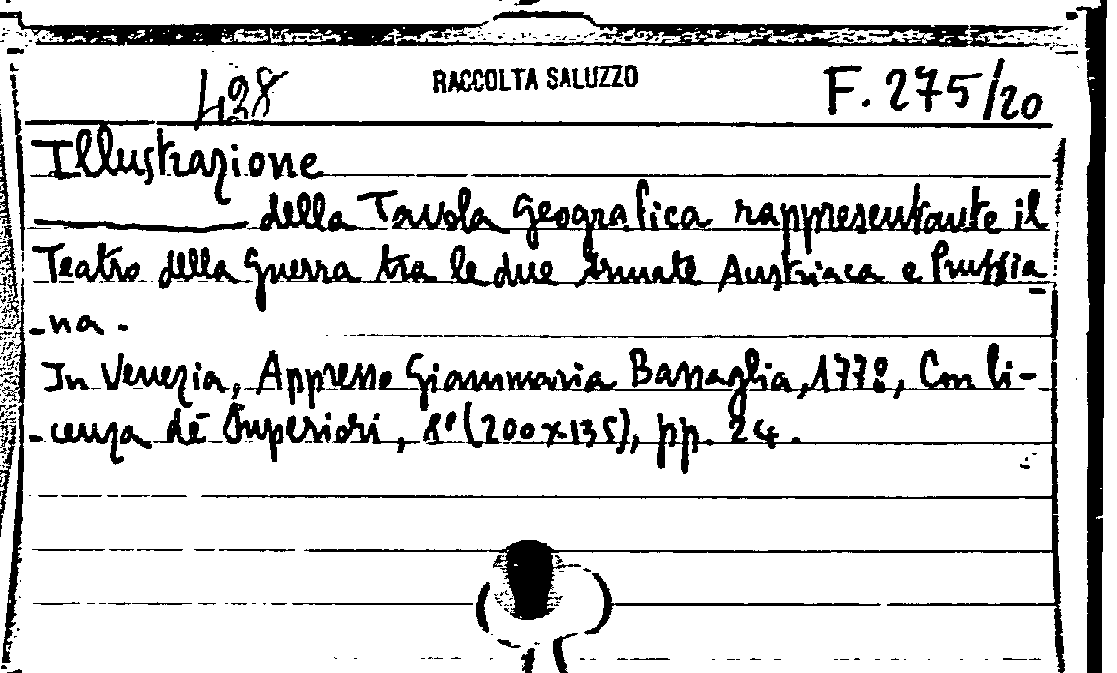 428 RACCOLTA SALUZZO F. 275/20
Illustrazione
——— della Tavola Geografica rappresentante il
Teatro della Guerra tra le due Armate Austriaca e Prussia
-na.
In Venezia, Appresso Giammaria Bassaglia, 1778, Con li-
-cenza de' Superiori, 8° (200x135), pp. 24.